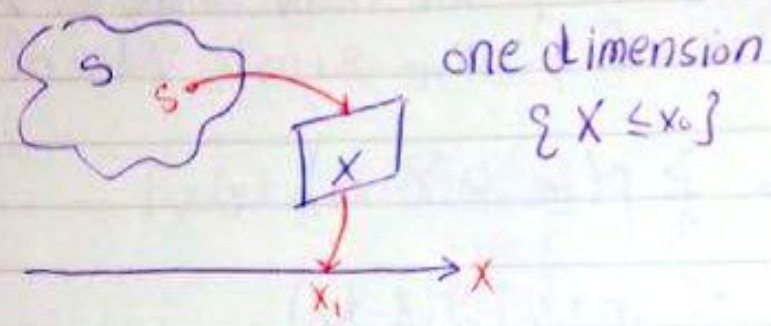 one dimension
S
s
{X ≤ x₀}
X
X
x₁